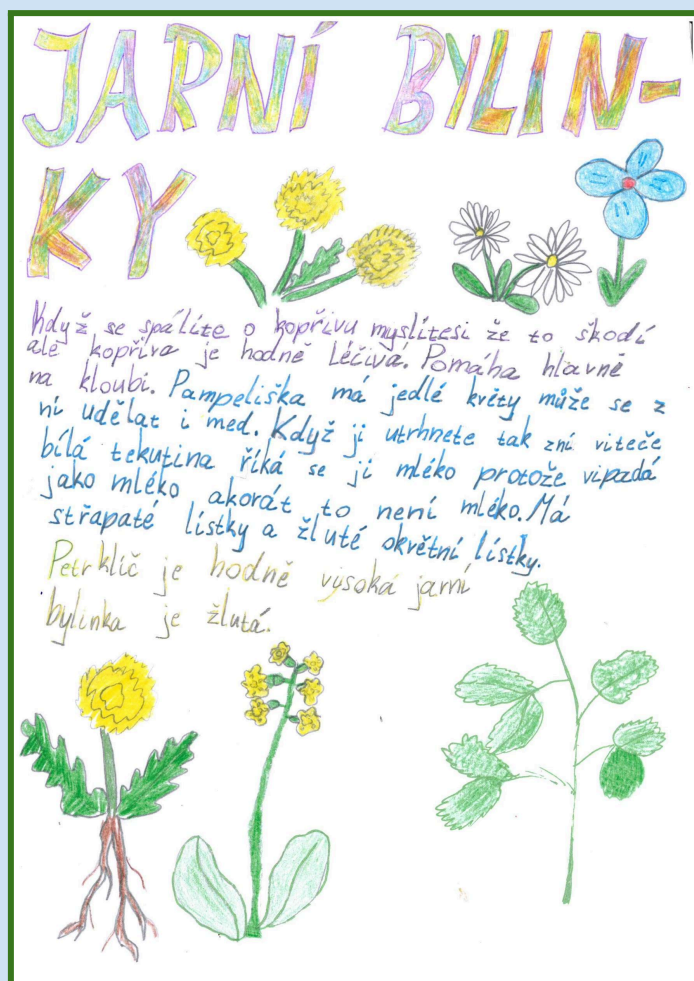 JARNÍ BYLIN-
KY
Když se spálíte o kopřivu myslítesi že to škodí
ale kopřiva je hodně léčivá. Pomáha hlavně
na kloubi. Pampeliška má jedlé květy může se z
ní udělat i med. Když ji utrhnete tak zní viteče
bílá tekutina říká se jí mléko protože vipadá
jako mléko akorát to není mléko. Má
střapaté lístky a žluté okvětní lístky.
Petrklíč je hodně vysoká jarní
bylinka je žlutá.